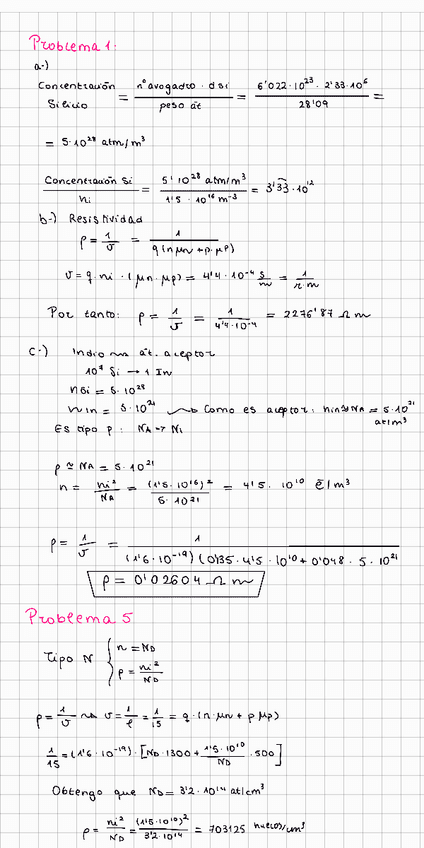 Problema 1:
a-)
Concentración Silicio = nº avogadro · d si / peso át = 6'022·10^23 · 2'33·10^6 / 28'09 =
= 5·10^28 atm/m^3
Concentración Si / ni = 5·10^28 atm/m^3 / 1'5 · 10^16 m^-3 = 3'33·10^12
b-) Resistividad
ρ = 1/σ = 1 / q(n μn + p·μP)
σ = q·ni·(μn·μp) = 4'4·10^-4 s/m = 1/Ω·m
Por tanto: ρ = 1/σ = 1 / 4'4·10^-4 = 2276'87 Ω m
c-) Indio → át. aceptor
Si → 1 In
nsi = 5·10^28
nIn = 5·10^21 → Como es aceptor: nin≃NA = 5·10^21
at/m^3
Es tipo p: NA >> Ni
p ≃ NA = 5·10^21
n = ni^2 / NA = (1'5·10^16)^2 / 5·10^21 = 4'5·10^10 e/m^3
ρ = 1/σ = 1 / (1'6·10^-19)(0'135·4'5·10^10 + 0'048·5·10^21
ρ = 0'02604 Ω m
Problema 5
Tipo N { n = ND
p = ni^2 / ND
ρ = 1/σ → σ = 1/ρ = 1/15 = q·(n·μn + p μp)
1/15 = (1'6·10^-19)·[ND·1300 + 1'5·10^10 / ND ·500]
Obtengo que ND = 3'2·10^14 at/cm^3
p = ni^2 / ND = (1'5·10^10)^2 / 3'2·10^14 = 703125 huecos/cm^3